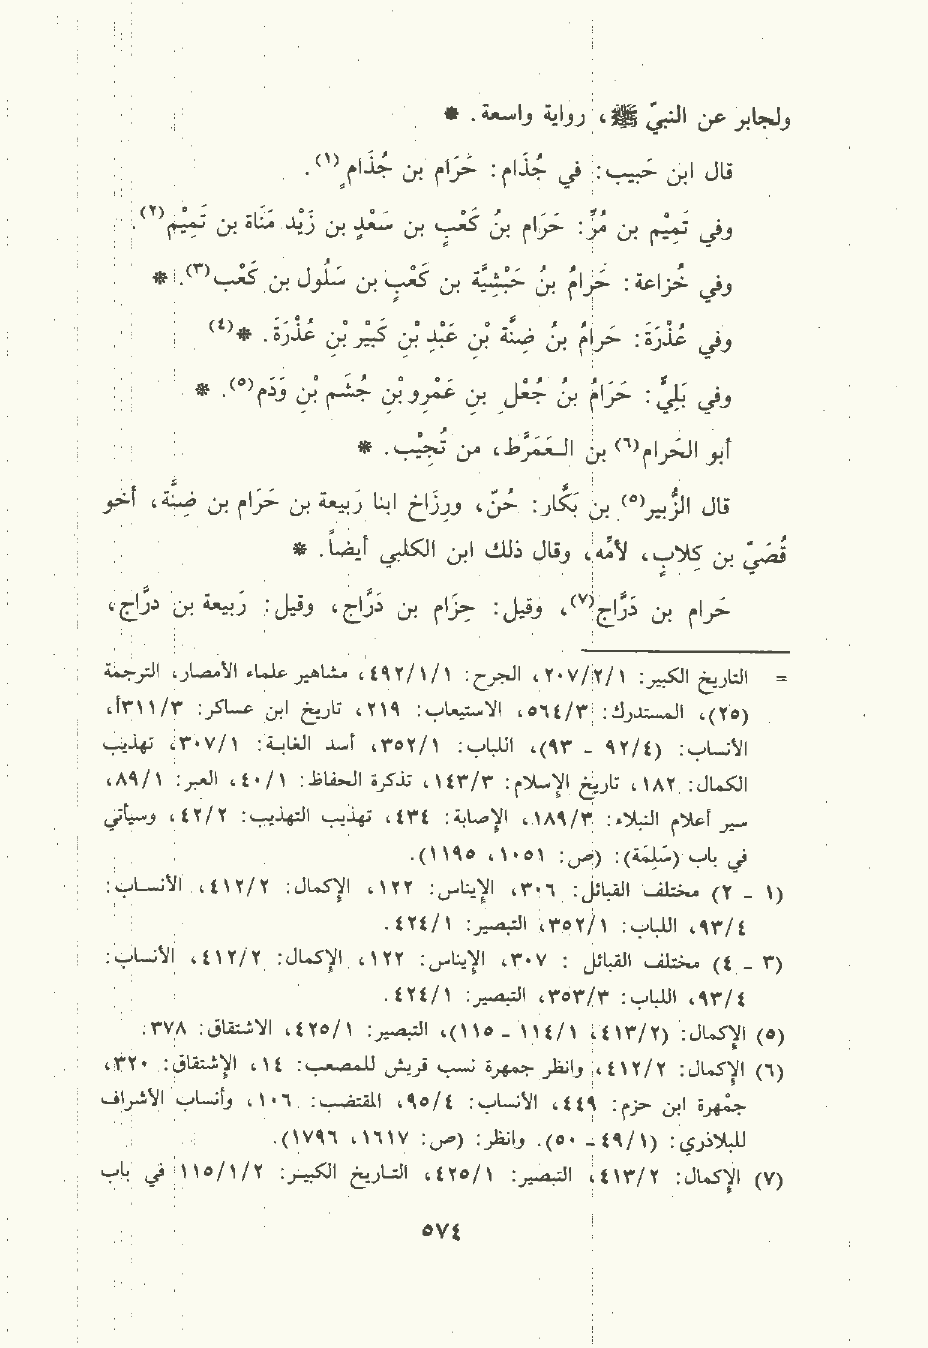 ولجابر عن النبيّ ﷺ، رواية واسعة. *
قال ابن حَبيب: في جُذَام: حَرَام بن جُذَامٍ(١).
وفي تَمِيْم بن مُرٍّ: حَرَام بنُ كَعْبٍ بن سَعْدِ بن زَيْد مَنَاة بن تَمِيْم(٢).
وفي خُزاعة: حَرامُ بنُ حَبْشِيَّة بن كَعْبٍ بن سَلُول بن كَعْب(٣). *
وفي عُذْرَةَ: حَرامُ بنُ ضِنَّة بْنِ عَبْدِ بْنِ كَبيْر بْنِ عُذْرَةَ. *(٤)
وفي بَلِيٍّ: حَرَامُ بنُ جُعْل بنِ عَمْرِو بْنِ جُشَم بْنِ وَدَم(٥). *
أبو الحَرام(٦) بن العَمَرَّط، من تُجِيْب. *
قال الزُّبير(٥) بن بَكَّار: حُنّ، ورِزَاخ ابنا رَبيعة بن حَرَام بن ضِنَّة، أخو
قُصَيّ بن كِلابٍ، لأمِّه، وقال ذلك ابن الكلبي أيضاً. *
حَرام بن دَرَّاج(٧)، وقيل: حِزَام بن دَرَّاج، وقيل: رَبيعة بن درَّاج،
= التاريخ الكبير: ٢٠٧/٢/١، الجرح: ٤٩٢/١/١، مشاهير علماء الأمصار، الترجمة
(٢٥)، المستدرك: ٥٦٤/٣، الاستيعاب: ٢١٩، تاريخ ابن عساكر: ٣١١/٣أ،
الأنساب: (٩٢/٤ - ٩٣)، اللباب: ٣٥٢/١، أسد الغابة: ٣٠٧/١، تهذيب
الكمال: ١٨٢، تاريخ الإسلام: ١٤٣/٣، تذكرة الحفاظ: ٤٠/١، العبر: ٨٩/١،
سير أعلام النبلاء: ١٨٩/٣، الإصابة: ٤٣٤، تهذيب التهذيب: ٤٢/٢، وسيأتي
في باب (سَلِمَة): (ص: ١٠٥١، ١١٩٥).
(١ - ٢) مختلف القبائل: ٣٠٦، الإيناس: ١٢٢، الإكمال: ٤١٢/٢، الأنساب:
٩٣/٤، اللباب: ٣٥٢/١، التبصير: ٤٢٤/١.
(٣ - ٤) مختلف القبائل: ٣٠٧، الإيناس: ١٢٢، الإكمال: ٤١٢/٢، الأنساب:
٩٣/٤، اللباب: ٣٥٣/٣، التبصير: ٤٢٤/١.
(٥) الإكمال: (٤١٣/٢، ١١٤/١ - ١١٥)، التبصير: ٤٢٥/١، الاشتقاق: ٣٧٨.
(٦) الإكمال: ٤١٢/٢، وانظر جمهرة نسب قريش للمصعب: ١٤، الإشتقاق: ٣٢٠،
جمْهرة ابن حزم: ٤٤٩، الأنساب: ٩٥/٤، المقتضب: ١٠٦، وأنساب الأشراف
للبلاذري: (٤٩/١ - ٥٠). وانظر: (ص: ١٦١٧، ١٧٩٦).
(٧) الإكمال: ٤١٣/٢، التبصير: ٤٢٥/١، التاريخ الكبير: ١١٥/١/٢ في باب
٥٧٤